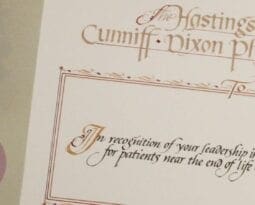 The Hastings
Cunniff · Dixon
To
In recognition of your leadership
for patients near the end of life